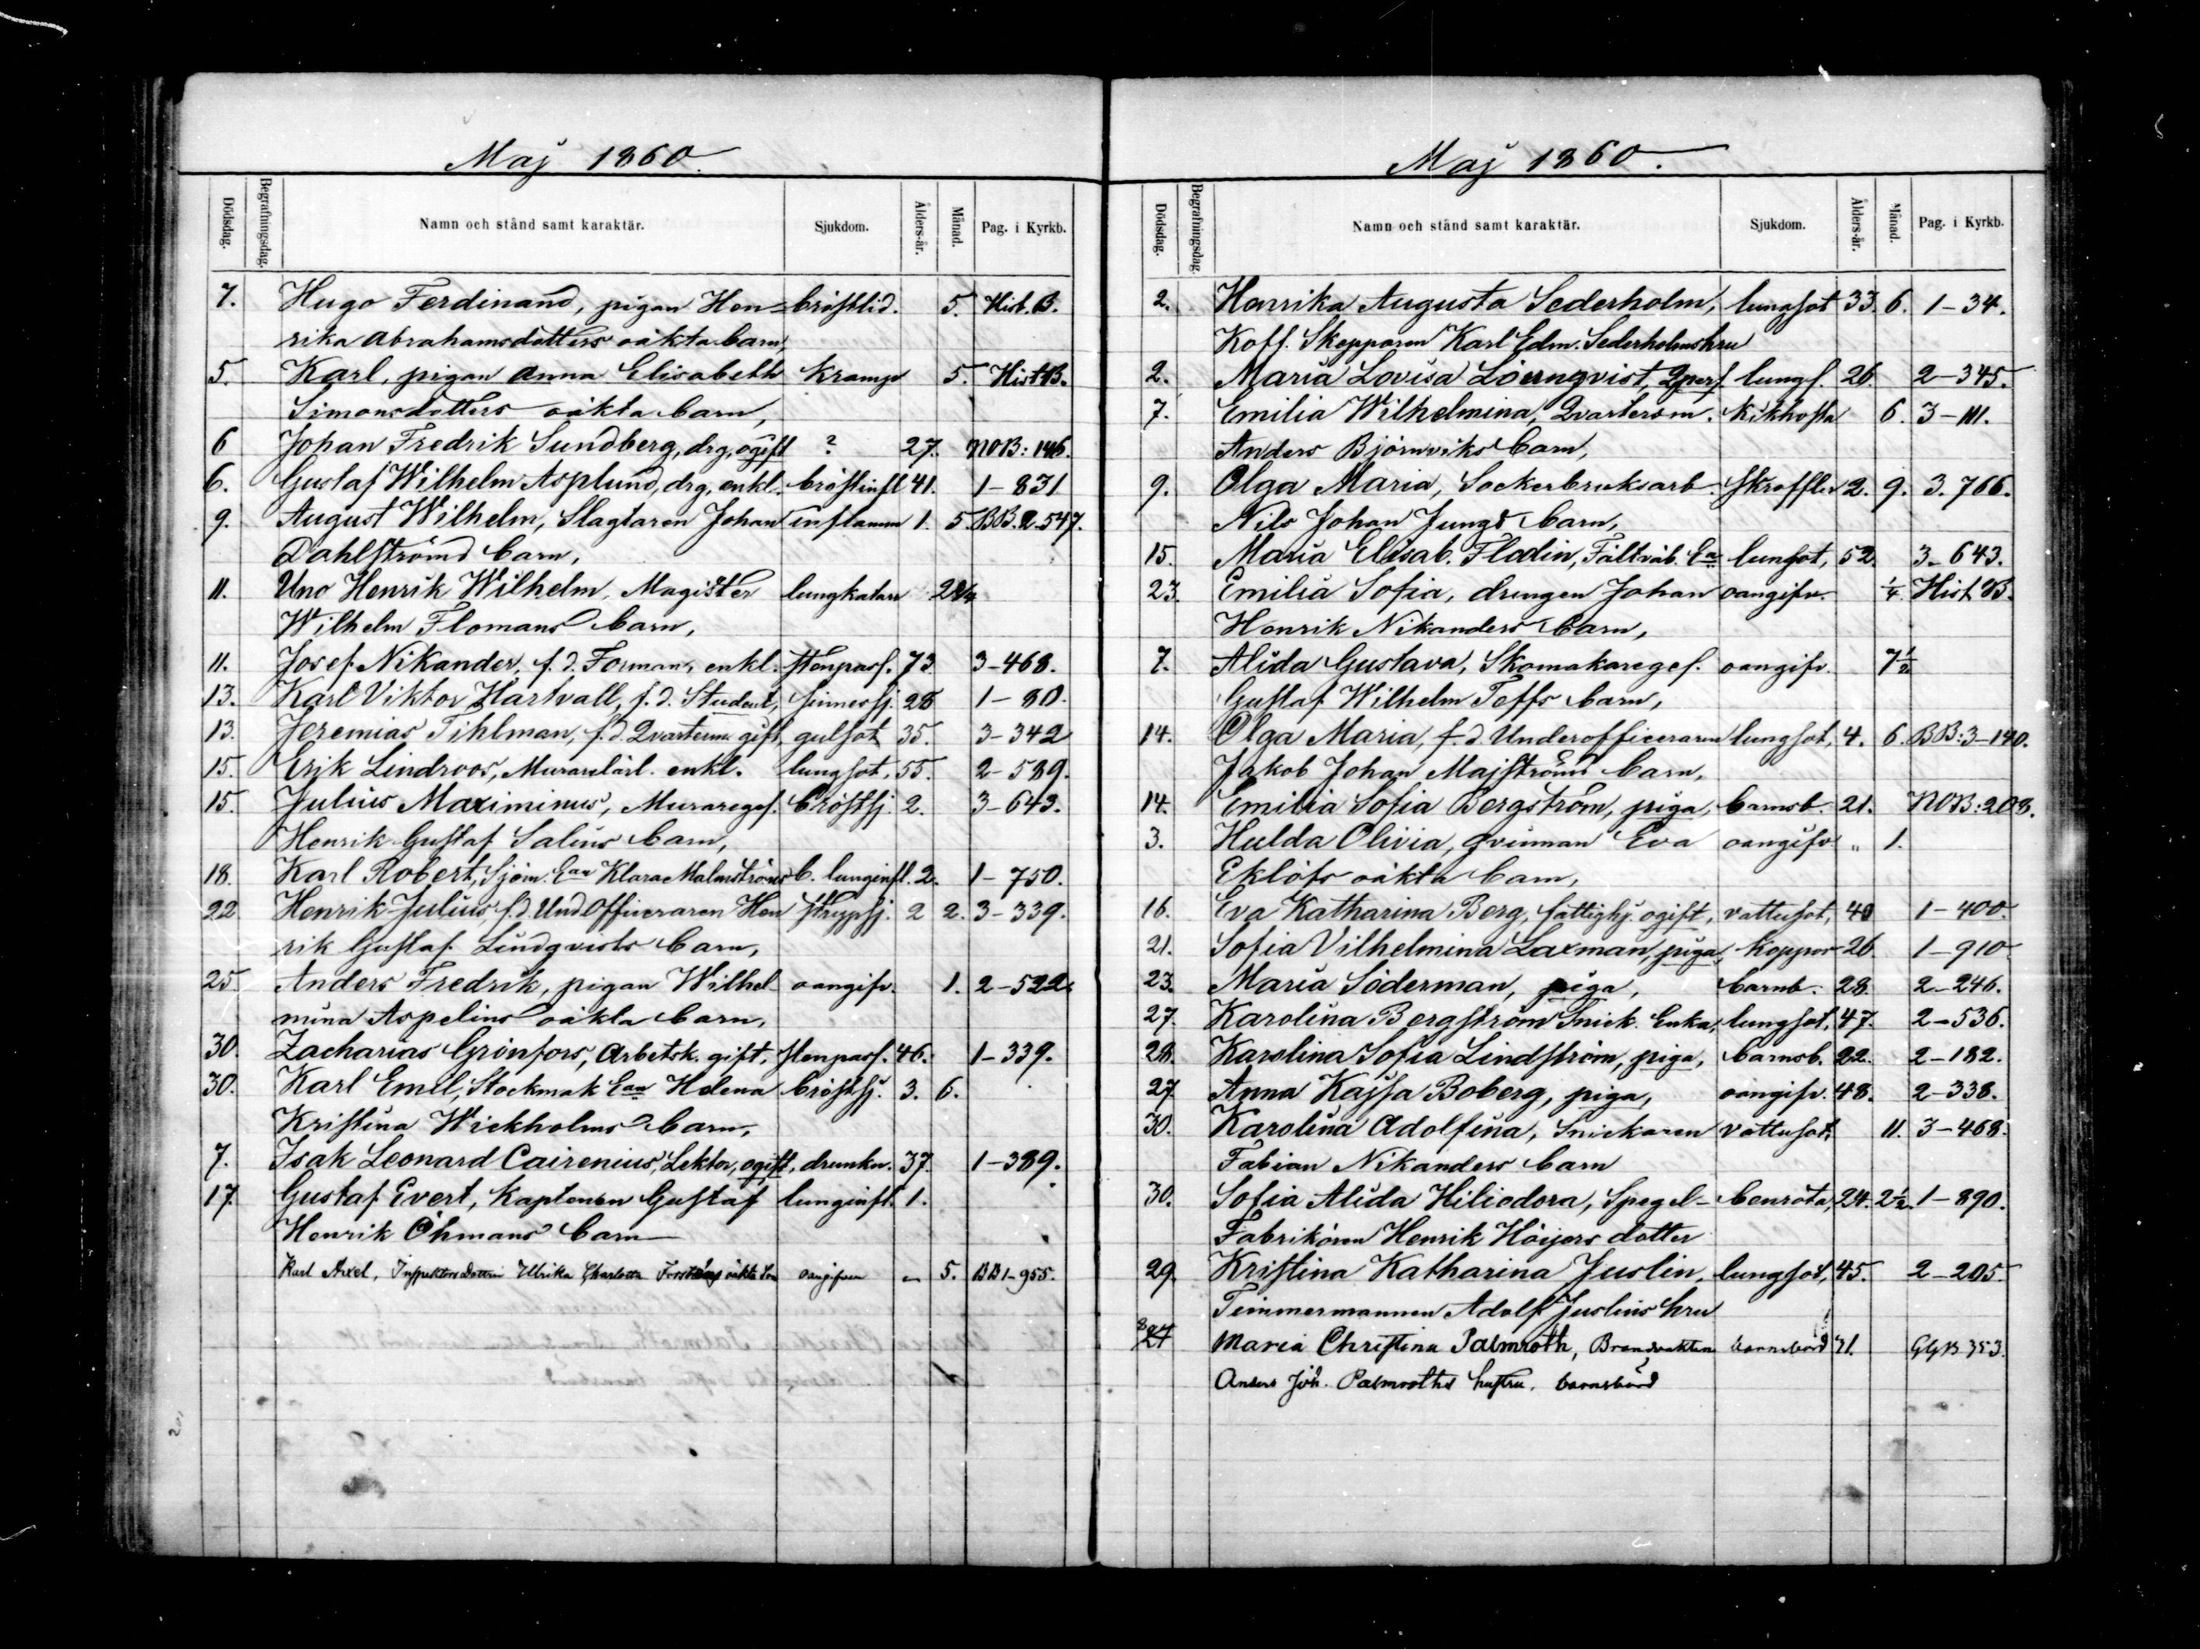 Maj 1860.
Dödsdag. Begrafningsdag. Namn och stånd samt karaktär. Sjukdom. Ålders-år. Månad. Pag. i Kyrkb.
7. Hugo Ferdinand, pigan Hen= bröstlid. 5. Hist. B.
rika Abrahamsdotters oäkta barn,
5. Karl, pigan Anna Elisabeth kramp 5. Hist B.
Simonsdotters oäkta barn,
6 Johan Fredrik Sundberg, drg, ogift ? 27. NOB: 146.
6. Gustaf Wilhelm Asplund, drg, enkl. bröstinfl 41. 1-831
9. August Wilhelm, Slagtaren Johan inflamm 1. 5. BB. 2-547.
Dahlströms barn,
11. Uno Henrik Wilhelm, Magister lungkatarr
Wilhelm Flomans barn,
11. Josef Nikander, f. d. Forman, enkl. stenpass. 73 3-468.
13. Karl Viktor Hartvall, f. d. Student, sinnessj. 28 1-80.
13. Jeremias Tihlman, f. d. Qvarterm gift, gulsot 35. 3-342
15. Erik Lindroos, enkl. lungsot, 55. 2-589.
15. Julius Maximinus, Muraregef. bröstsj. 2. 3-643.
Henrik Gustaf Salins barn,
18. Karl Robert, Sjöm. Ean Klara Malmströms b. lunginfl. 2. 1-750.
22 Henrik Julius, f. d. UndOfficeraren Hen strypsj. 2 2. 3-339.
rik Gustaf Lindqvists barn,
25. Anders Fredrik, pigan Wilhel oangifv. 1. 2-522.
mina Aspelins oäkta barn,
30. Zacharias Grönfors, Arbetsk. gift, stenpass. 46. 1-339.
30. Karl Emil, Stockmak Ean Helena bröstsj. 3. 6.
Kristina Wickholms barn,
7. Isak Leonard Cairenius, Lektor, ogift, drunkn. 37. 1-389.
17. Gustaf Evert, Kaptenen Gustaf lunginfl. 1.
Henrik Öhmans barn
Karl Axel, Inspektors Dottren Ulrika Charlotta oäkta Son oangifven " 5. BB 1-955.
Maj 1860.
Dödsdag. Begrafningsdag. Namn och stånd samt karaktär. Sjukdom. Ålders-år. Månad. Pag. i Kyrkb.
2. Henrika Augusta Sederholm, lungsot 33. 6. 1-34.
Koff. Skepparen Karl Edm. Sederholms hru
2. Maria Lovisa Löernqvist, lungs. 26. 2-345.
7. Emilia Wilhelmina, Qvartersm. kikhosta 6. 3-111.
Anders Björnviks barn,
9. Olga Maria, Sockerbruksarb. skroffler 2. 9. 3. 766.
Nils Johan Jungs barn,
15. Maria Elisab. Flodin, Fältväb. Ea lungsot, 52 3-643.
23. Emilia Sofia, drengen Johan oangifv. 1/4 Hist B.
Henrik Nikanders barn,
7. Alida Gustava, Skomakaregef. oangifv. 7 1/2
Gustaf Wilhelm Teffs barn,
14. Olga Maria, f. d. Underofficeraren lungsot, 4. 6. BB: 3-140.
Jakob Johan Majströms barn,
14. Emilia Sofia Bergström, piga, barnsb. 21. NOB: 208.
3. Hulda Olivia, qvinnan Eva oangifv " 1.
Eklöfs oäkta barn,
16. Eva Katharina Berg, fattighj. ogift, vattusot, 40 1-400.
21. Sofia Vilhelmina Laxman, piga, koppor 26 1-910
23. Maria Söderman, piga, barnb. 28. 2-246.
27. Karolina Bergström Snick. Enka, lungsot, 47. 2-536.
28. Karolina Sofia Lindström, piga, barnsb. 22. 2-182.
27. Anna Kajsa Boberg, piga, oangifv. 48. 2-338.
30. Karolina Adolfina, Snickaren vattusot, 11. 3-468.
Fabian Nikanders barn
30. Sofia Alida Heliodora, Spegel- benröta, 24. 2 1/2. 1-890.
Fabrikören Henrik Höijers dotter
29. Kristina Katharina Juslin, lungsot, 45. 2-205.
Timmermannen Adolf Juslins hru
27 Maria Christina Palmroth, Brandvakten barnsbörd 31. GGB 353.
Anders Joh. Palmroths hustru, barnsbörd